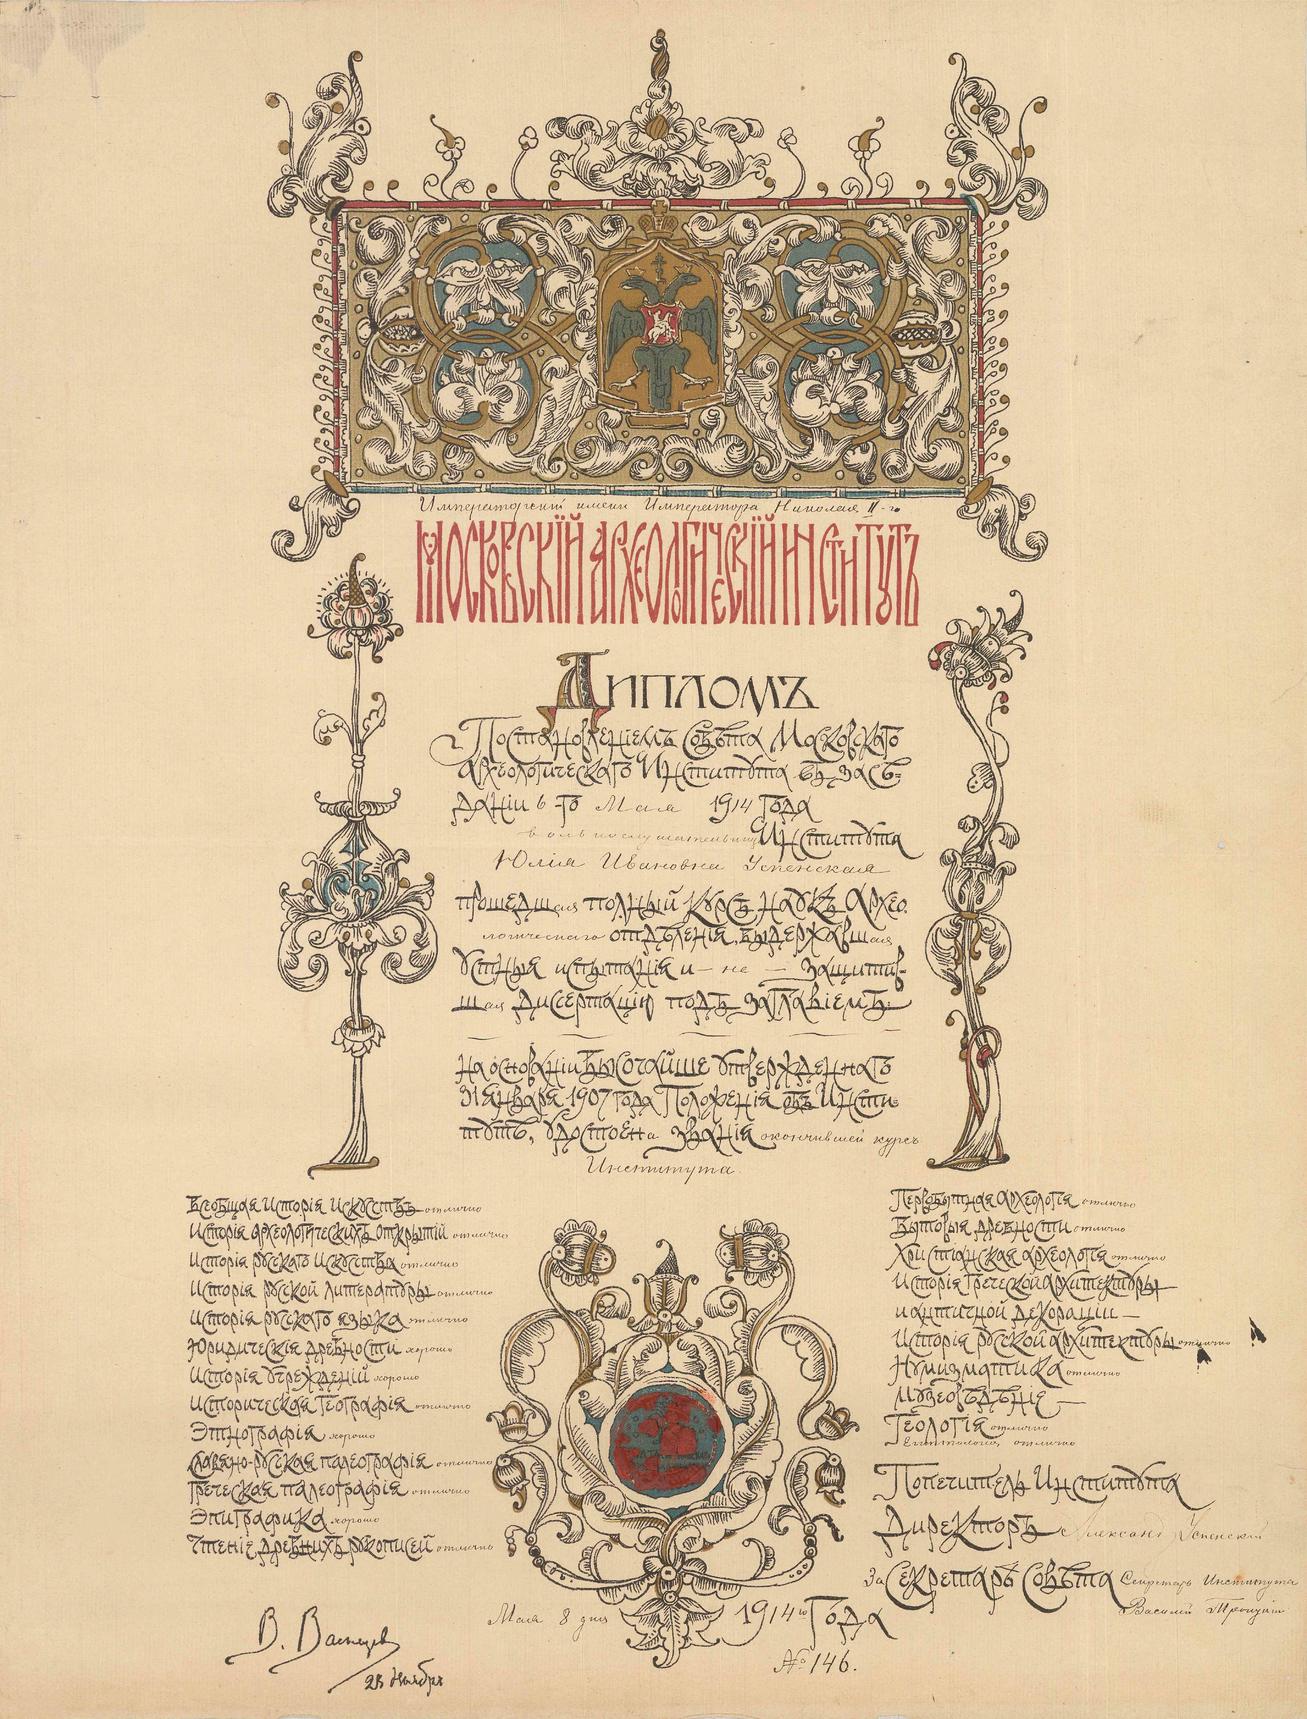 Императорскій имени Императора Николая II-го
Московскій Археологическій Институтъ
Дипломъ
Постановленіемъ Совѣта Московскаго
Археологическаго Института въ засѣ-
даніи 6 го Мая 1914 года
вольнослушательница Института
Юлія Ивановна Успенская
прошедшая полный курсъ наукъ Архео-
логическаго отдѣленія, выдержавшая
устныя испытанія и — не — защитив-
шая диссертацію подъ заглавіемъ:
На основаніи Высочайше утвержденнаго
31 января 1907 года Положенія объ Инсти-
тутѣ, удостоена званія окончившей курсъ
Института.
Всеобщая исторія искусствъ отлично
Исторія археологическихъ открытій отлично
Исторія русскаго искусства отлично
Исторія русской литературы отлично
Исторія русскаго языка отлично
Юридическія древности хорошо
Исторія учрежденій хорошо
Историческая географія отлично
Этнографія хорошо
Славяно-русская палеографія отлично
Греческая палеографія отлично
Эпиграфика хорошо
Чтеніе древнихъ рукописей отлично
Первобытная археологія отлично
Бытовыя древности отлично
Христіанская археологія отлично
Исторія греческой архитектуры
и античной декораціи —
Исторія русской архитектуры отлично
Нумизматика отлично
Музеовѣдѣніе —
Геологія отлично
Египтологія отлично
Попечитель Института
Директоръ Александръ Успенскій
За Секретарь Совѣта Секретарь Института
Василій Троицкій
Мая 8 дня 1914 го года
№ 146.
В. Васнецов
23 Ноября